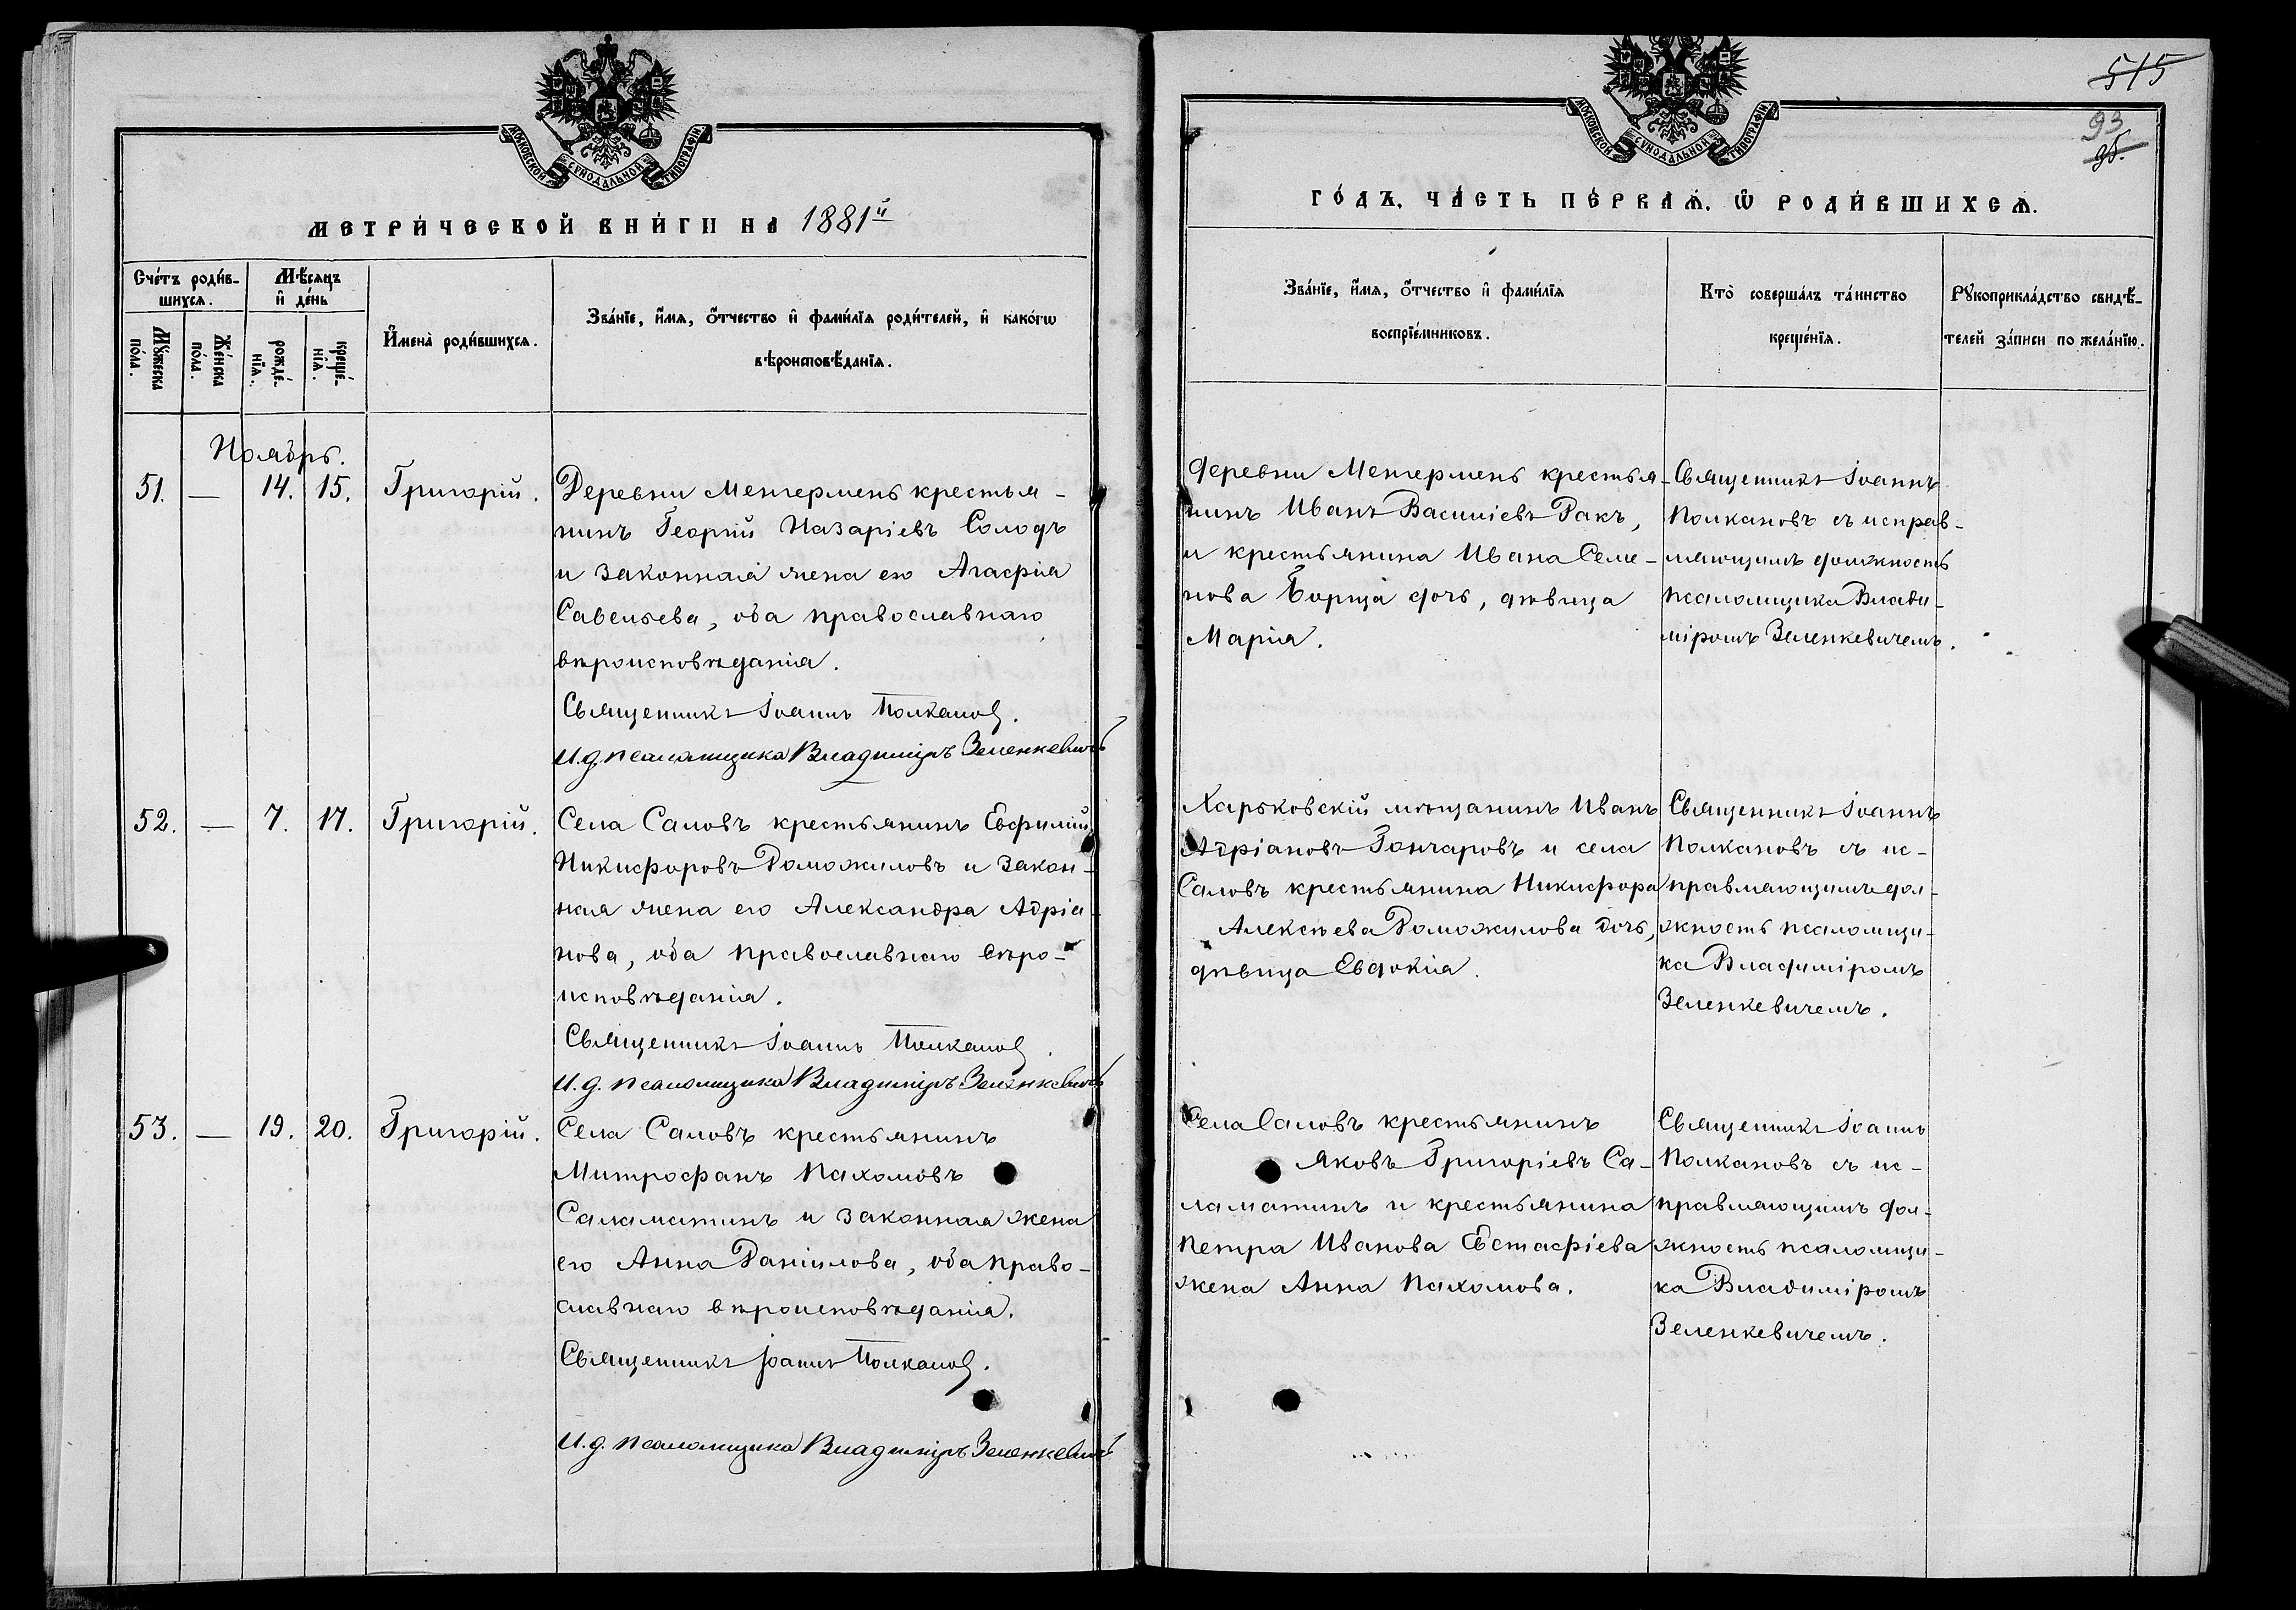 МОСКОВСКОЙ СУНОДАЛЬНОЙ ТИПОГРАФІИ
МЕТРИ́ЧЕСКОЙ КНИ́ГИ НА 1881й
Сче́тъ роди́в-
шихсѧ.
Мѣ́сѧцъ
и҆ де́нь
И҆мена̀ роди́вшихсѧ.
Зва́нїе, и҆́мѧ, ѻ҆́тчество и҆ фами́лїѧ роди́телей, и҆ како́гѡ
вѣроисповѣ́данїѧ.
Мꙋ́жеска
по́ла.
Же́нска
по́ла.
рожде́-
нїѧ.
креще́-
нїѧ.
Ноябрь.
51. — 14. 15. Григорій. Деревни Метермень крестья-
нинъ Георгій Назаріевъ Солодъ
и законная жена его Агафія
Савельева, оба православнаго
вѣроисповѣданія.
Священникъ Іоаннъ Полкановъ.
И.д. псаломщика Владиміръ Зеленкевичъ
52. — 7. 17. Григорій. Села Саловъ крестьянинъ Евфимій
Никифоровъ Доможиловъ и закон-
ная жена его Александра Адріа-
нова, оба православнаго вѣро-
исповѣданія.
Священникъ Іоаннъ Полкановъ.
И.д. псаломщика Владиміръ Зеленкевичъ
53. — 19. 20. Григорій. Села Саловъ крестьянинъ
Митрофанъ Пахомовъ
Саламатинъ и законная жена
его Анна Даніилова, оба право-
славнаго вѣроисповѣданія.
Священникъ Іоаннъ Полкановъ.
И.д. псаломщика Владиміръ Зеленкевичъ
515
93
95.
МОСКОВСКОЙ СУНОДАЛЬНОЙ ТИПОГРАФІИ
ГО́ДЪ, ЧА́СТЬ ПЕ́РВАѦ, Ѡ҆ РОДИ́ВШИХСѦ.
Зва́нїе, и҆́мѧ, ѻ҆́тчество и҆ фами́лїѧ
воспрїе́мниковъ.
Кто̀ соверша́лъ та́инство
креще́нїѧ.
Рꙋкоприкла́дство свидѣ́-
телей за́писи по жела́нїю.
Деревни Метермень крестья-
нинъ Иванъ Василіевъ Ракъ,
и крестьянина Ивана Семе-
нова Борща дочь, дѣвица
Марія.
Священникъ Іоаннъ
Полкановъ съ исправ-
ляющимъ должность
псаломщика Влади-
міромъ Зеленкевичемъ.
Харьковскій мѣщанинъ Иванъ
Адріановъ Гончаровъ и села
Саловъ крестьянина Никифора
Алексѣева Доможилова дочь,
дѣвица Евдокія.
Священникъ Іоаннъ
Полкановъ съ ис-
правляющимъ дол-
жность псаломщи-
ка Владиміромъ
Зеленкевичемъ.
Села Саловъ крестьянинъ
Яковъ Григоріевъ Са-
ламатинъ и крестьянина
Петра Иванова Евстафіева
жена Анна Пахомова.
Священникъ Іоаннъ
Полкановъ съ ис-
правляющимъ дол-
жность псаломщи-
ка Владиміромъ
Зеленкевичемъ.